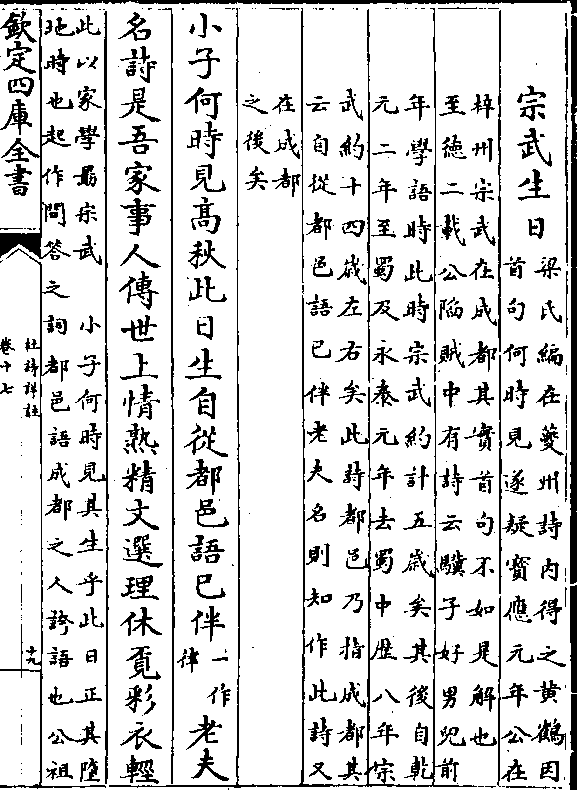 宗武生日
梁氏編在夔州詩内得之黄鶴因
首句何時見遂疑寳應元年公在
梓州宗武在成都其實首句不如是解也
至徳二載公陷賊中有詩云驥子好男兒前
年學語時此時宗武約計五歳矣其後自乾
元二年至蜀及永泰元年去蜀中歴八年宗
武約十四歳左右矣此詩都邑乃指成都其
云自從都邑語已伴老夫名則知作此詩又
在成都
之後矣
小子何時見髙秋此日生自從都邑語已伴
一作
律
老夫
名詩是吾家事人傳世上情熟精文選理休覓彩衣輕
此以家學朂宗武　小子何時見其生乎此日正其墮
地時也起作問答之詞都邑語成都之人誇語也公祖
欽定四庫全書
杜詩詳註
卷十七
十九